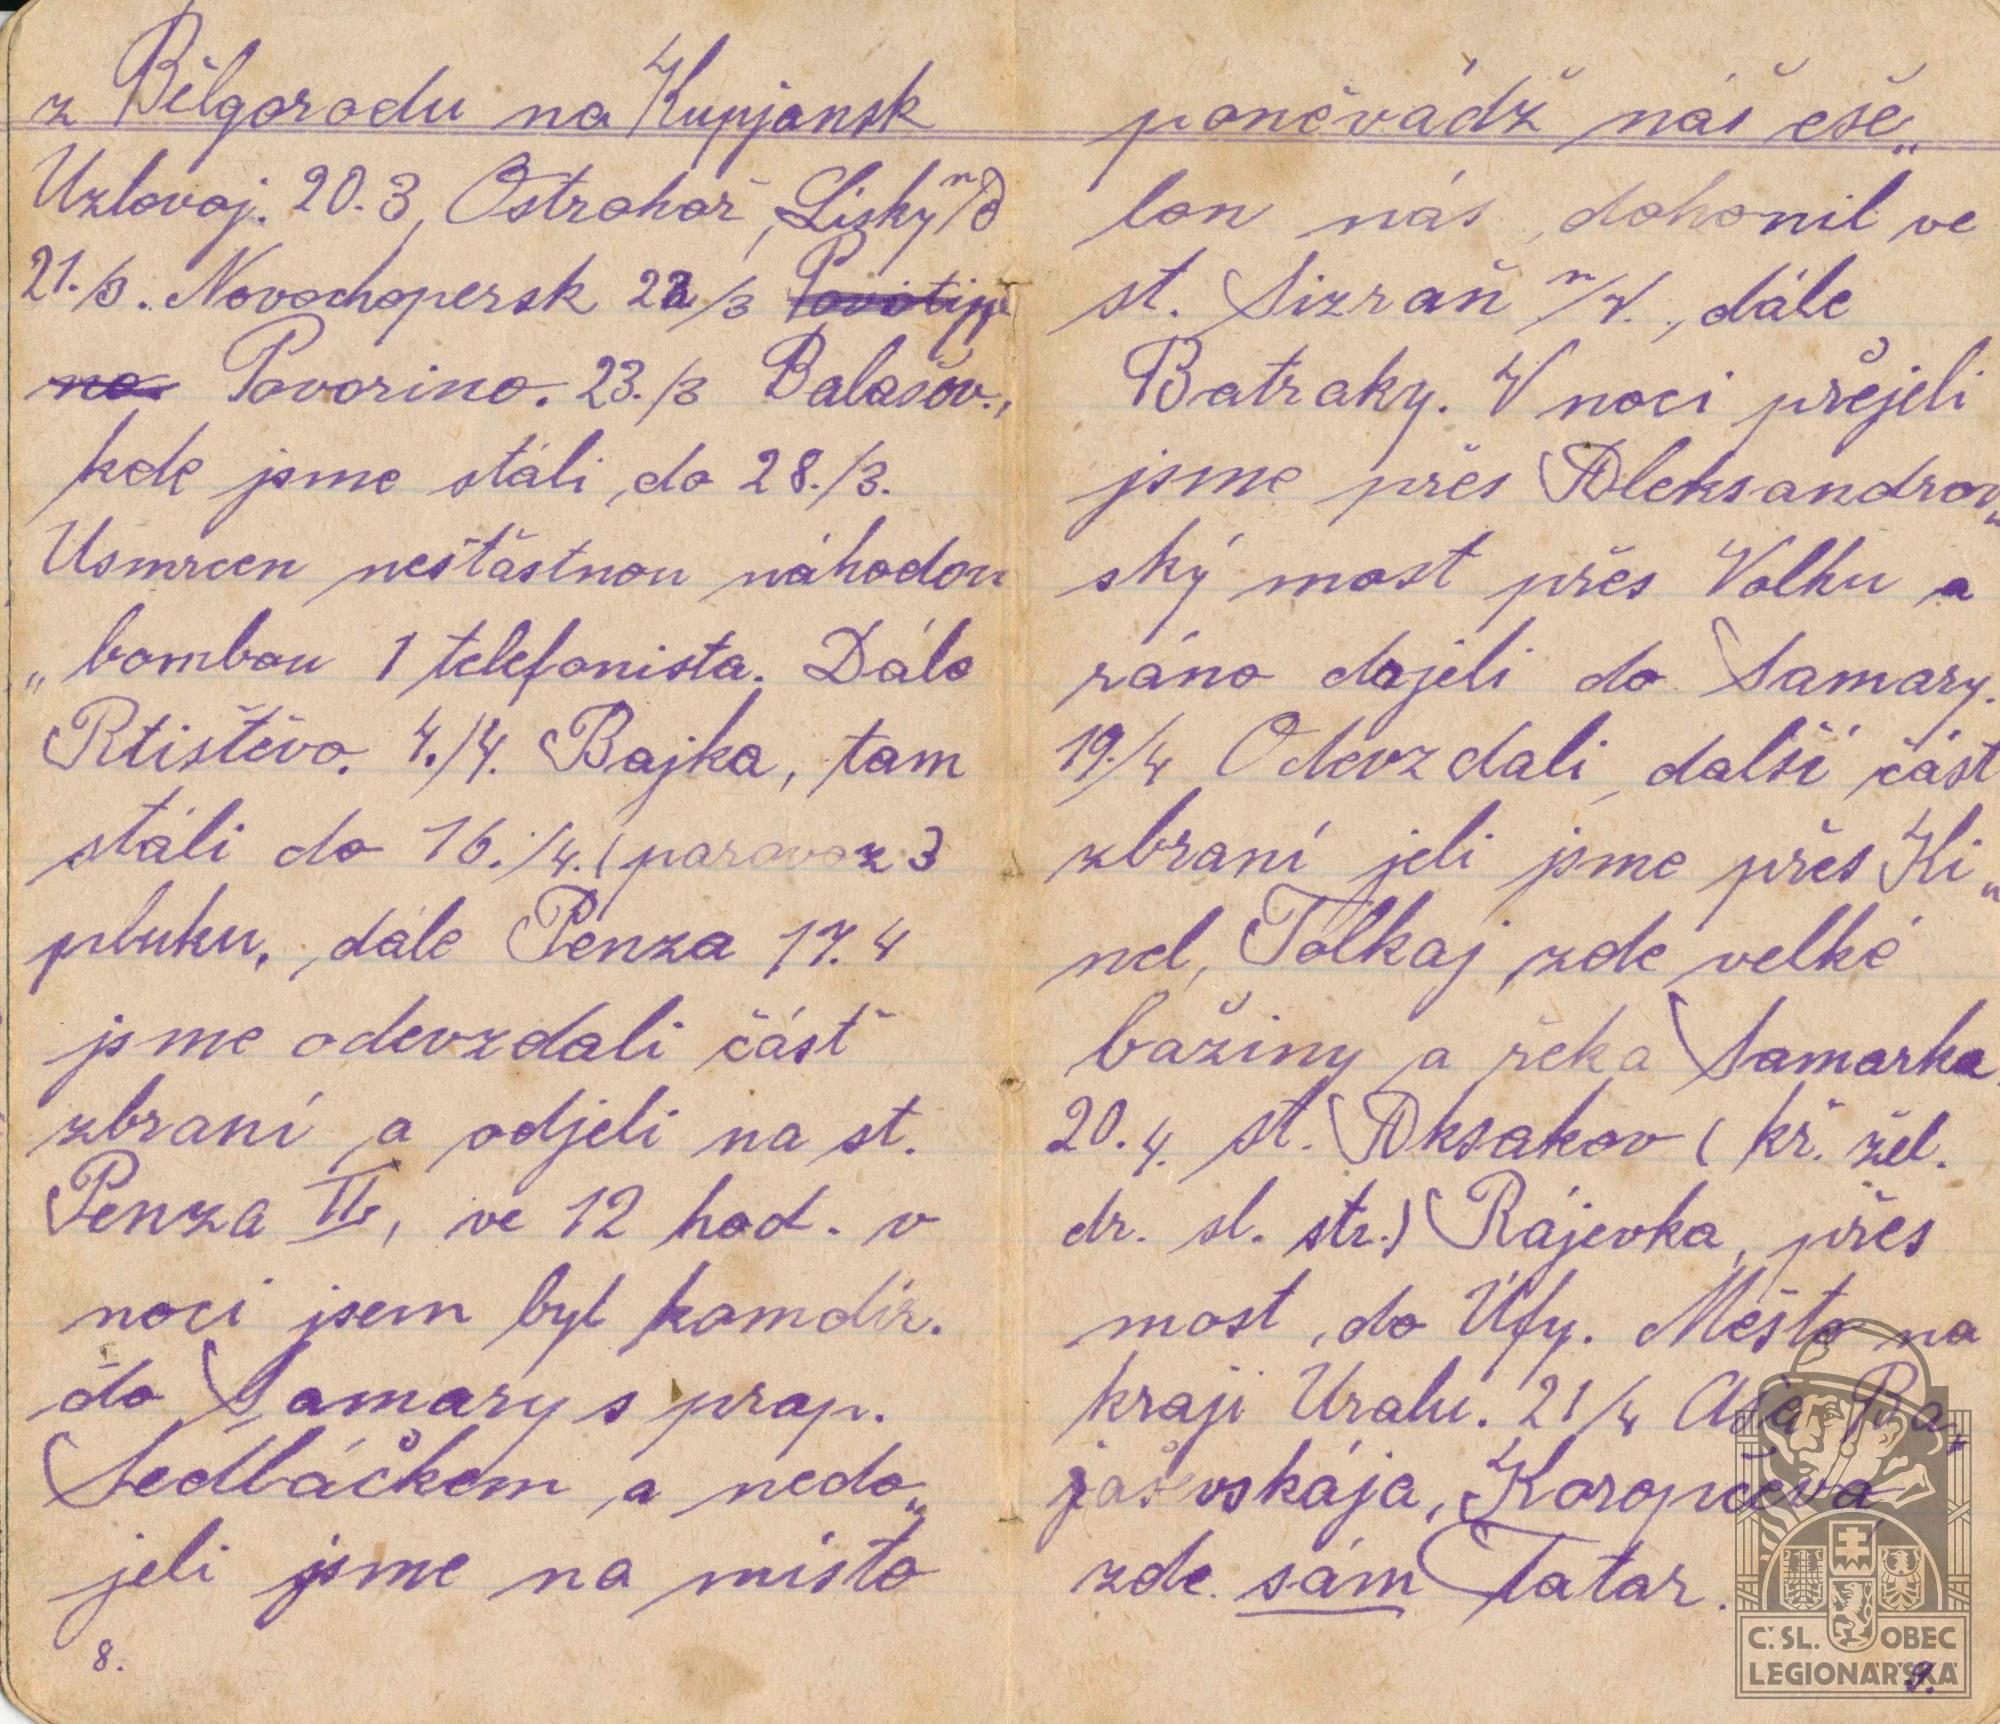 z Bělgorodu na Kupjansk
Uzlovoj. 20.3, Ostrohož, Lisky n/D
21./3. Novochopersk 22/3
Povorino. 23./3 Balašov.,
kde jsme stáli do 28./3.
Usmrcen nešťastnou náhodou
„bombou 1 telefonista. Dále
Rtiščevo. 4./4. Bajka, tam
stáli do 16./4. (parovoz 3
pluku, dále Penza 17.4
jsme odevzdali část
zbraní a odjeli na st.
Penza II, ve 12 hod. v
noci jsem byl komdír.
do Samary s prap.
Sedláčkem a nedo„
jeli jsme na místo
8.
poněvádž náš eše„
lon nás dohonil ve
st. Sizraň n/V., dále
Batraky. V noci přejeli
jsme přes Aleksandrov„
ský most přes Volhu a
ráno dojeli do Samary.
19./4 Odevzdali další část
zbraní jeli jsme přes Ki„
nel, Tolkaj, zde velké
bažiny a řeka Samarka.
20.4. st. Aksakov (kř. žel.
dr. sl. str.) Rájevka, přes
most do Úfy. Město na
kraji Uralu. 21/4 Aša Ba„
jaševskája, Koropčeva
zde sám Tatar.
9.
Č. SL. OBEC
LEGIONÁŘSKÁ